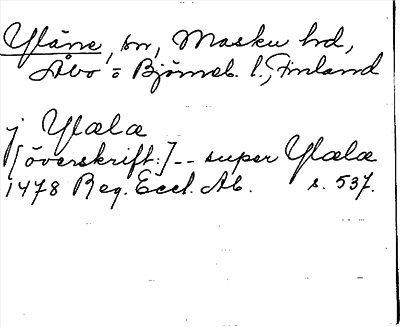 Yläne, sn, Masku hd,
Åbo = Björneb. l., Finland
j Ylælæ
[överskrift:] -- super Ylælæ
1478 Reg. Eccl. Ab. s. 537.